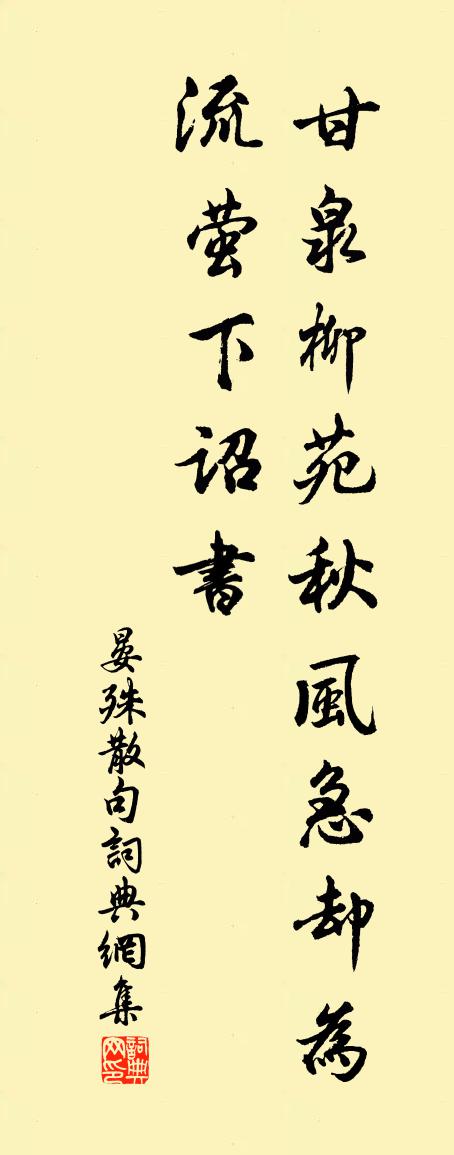 甘泉柳苑秋風急却為
流萤下詔書
晏殊散句詞典網集
詞典
网印